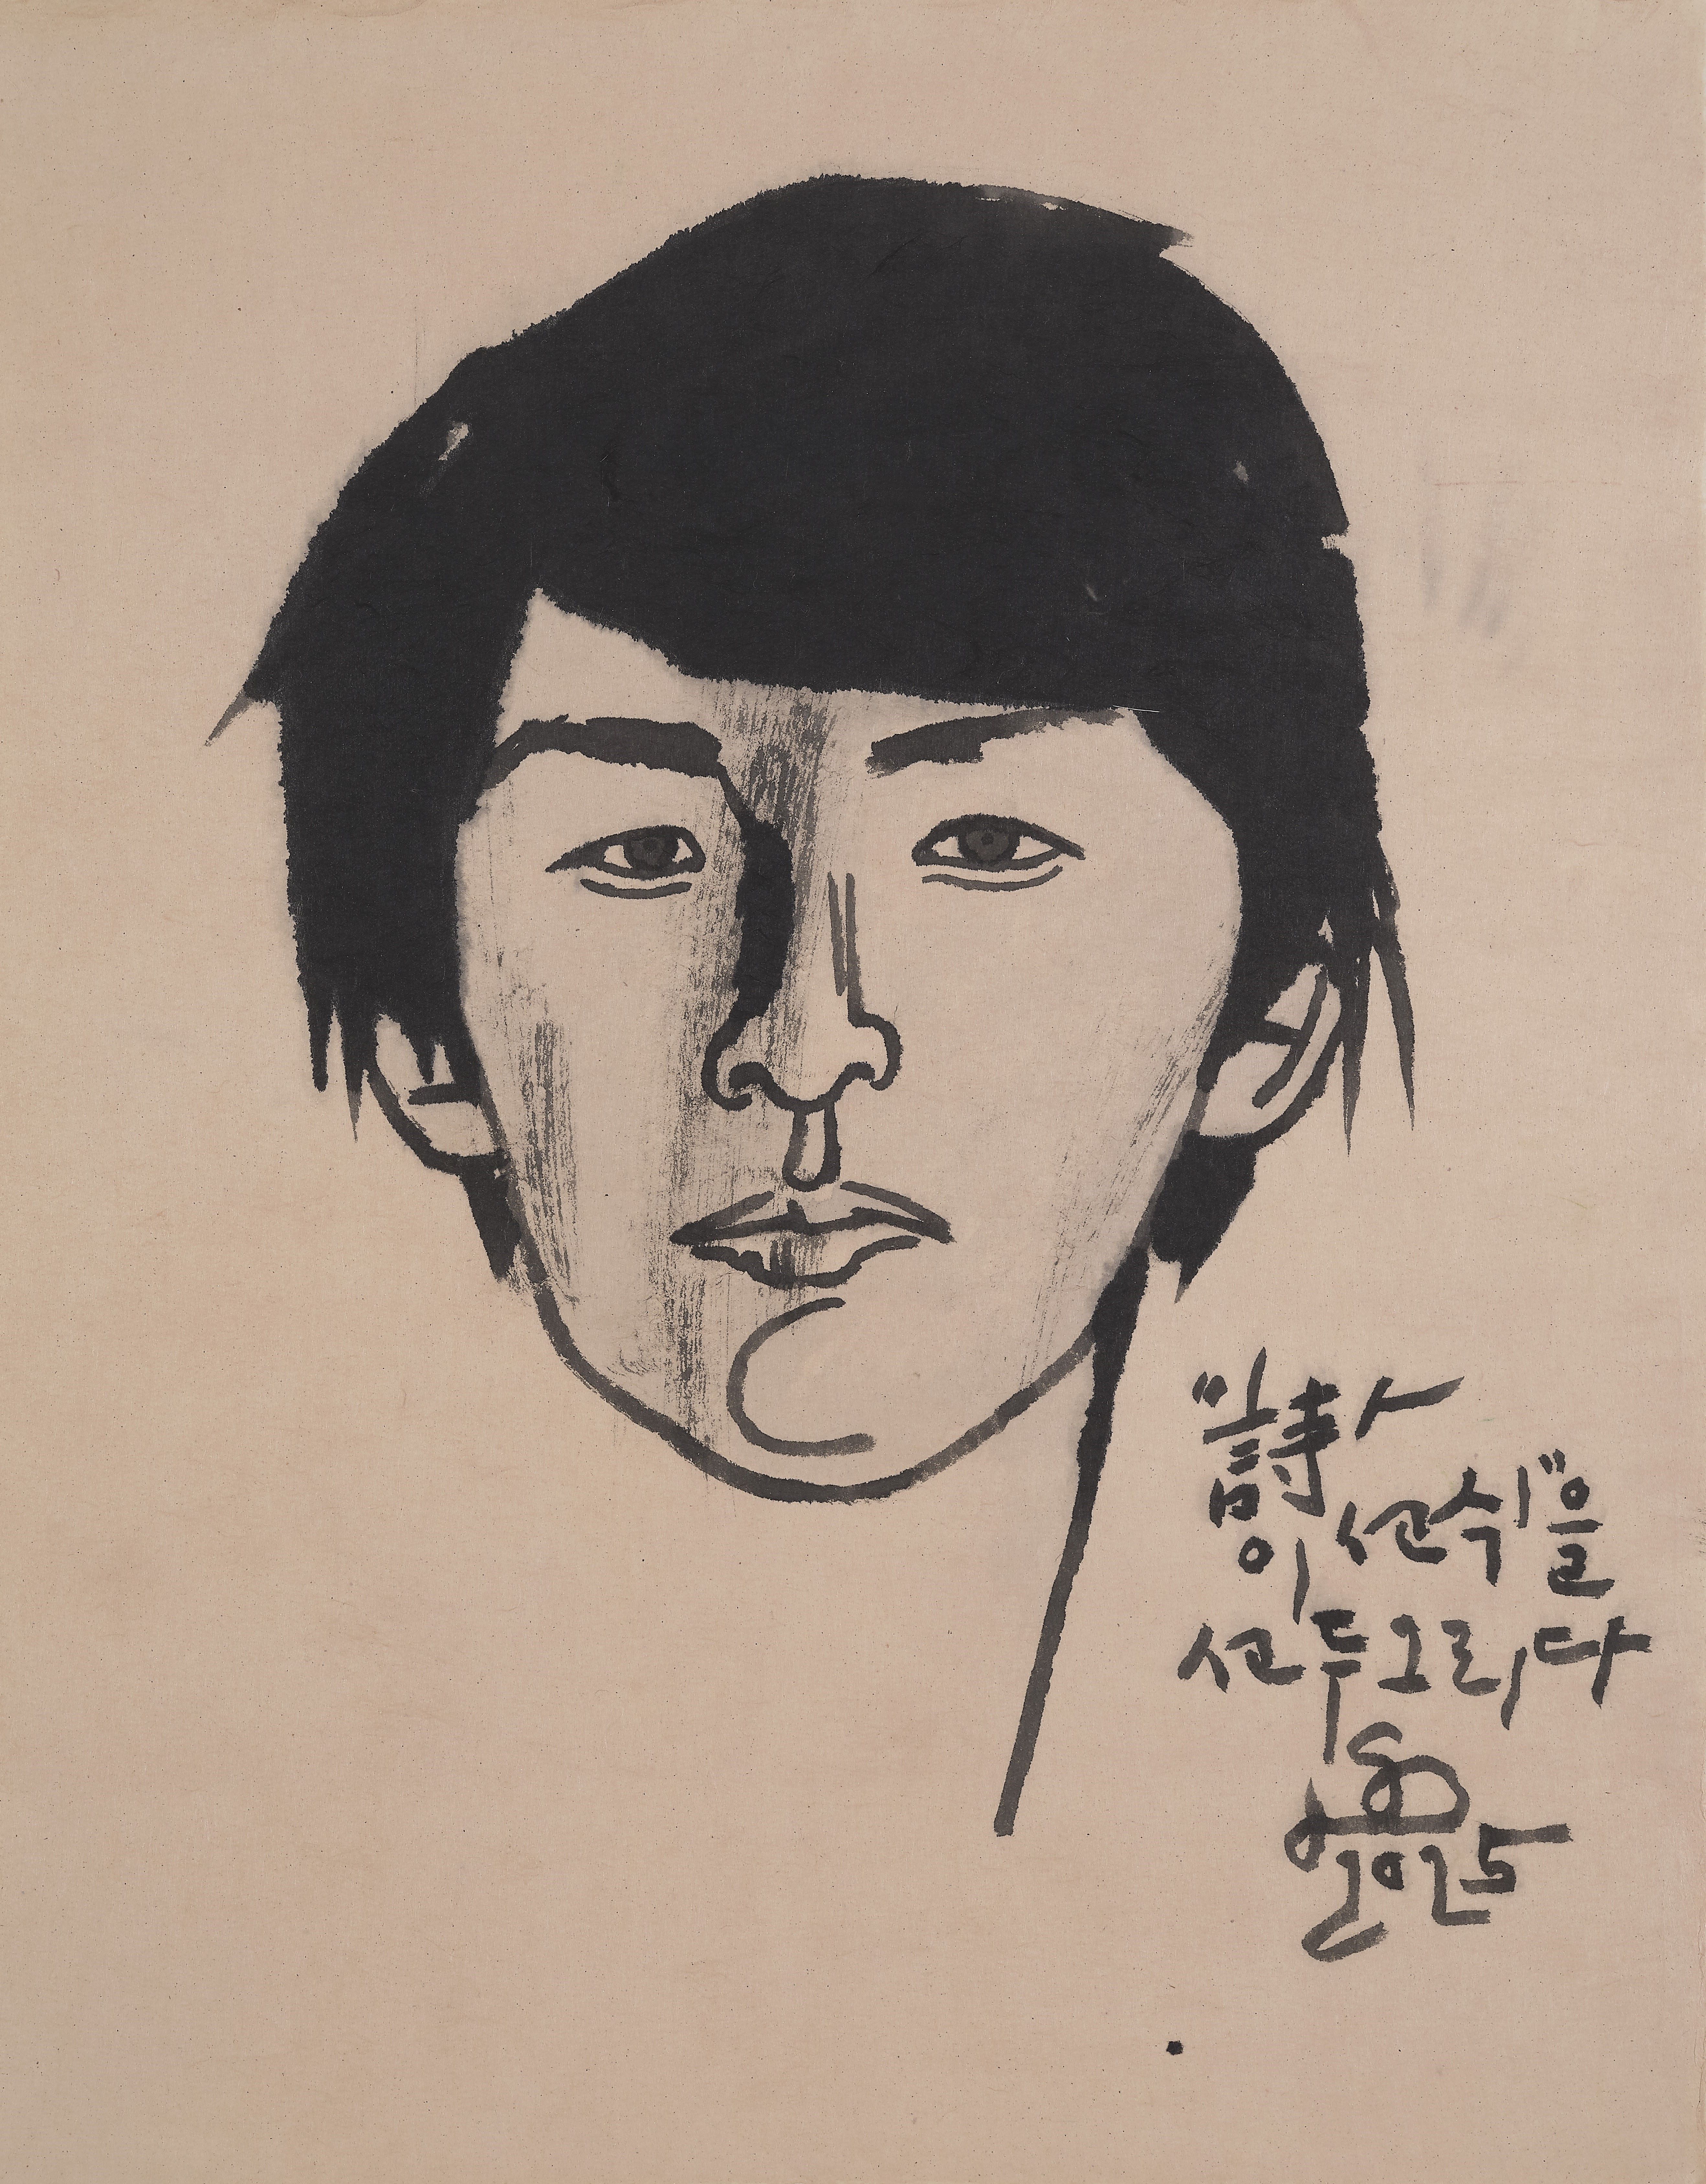 "詩人
이선식"을
선두그리다
2025